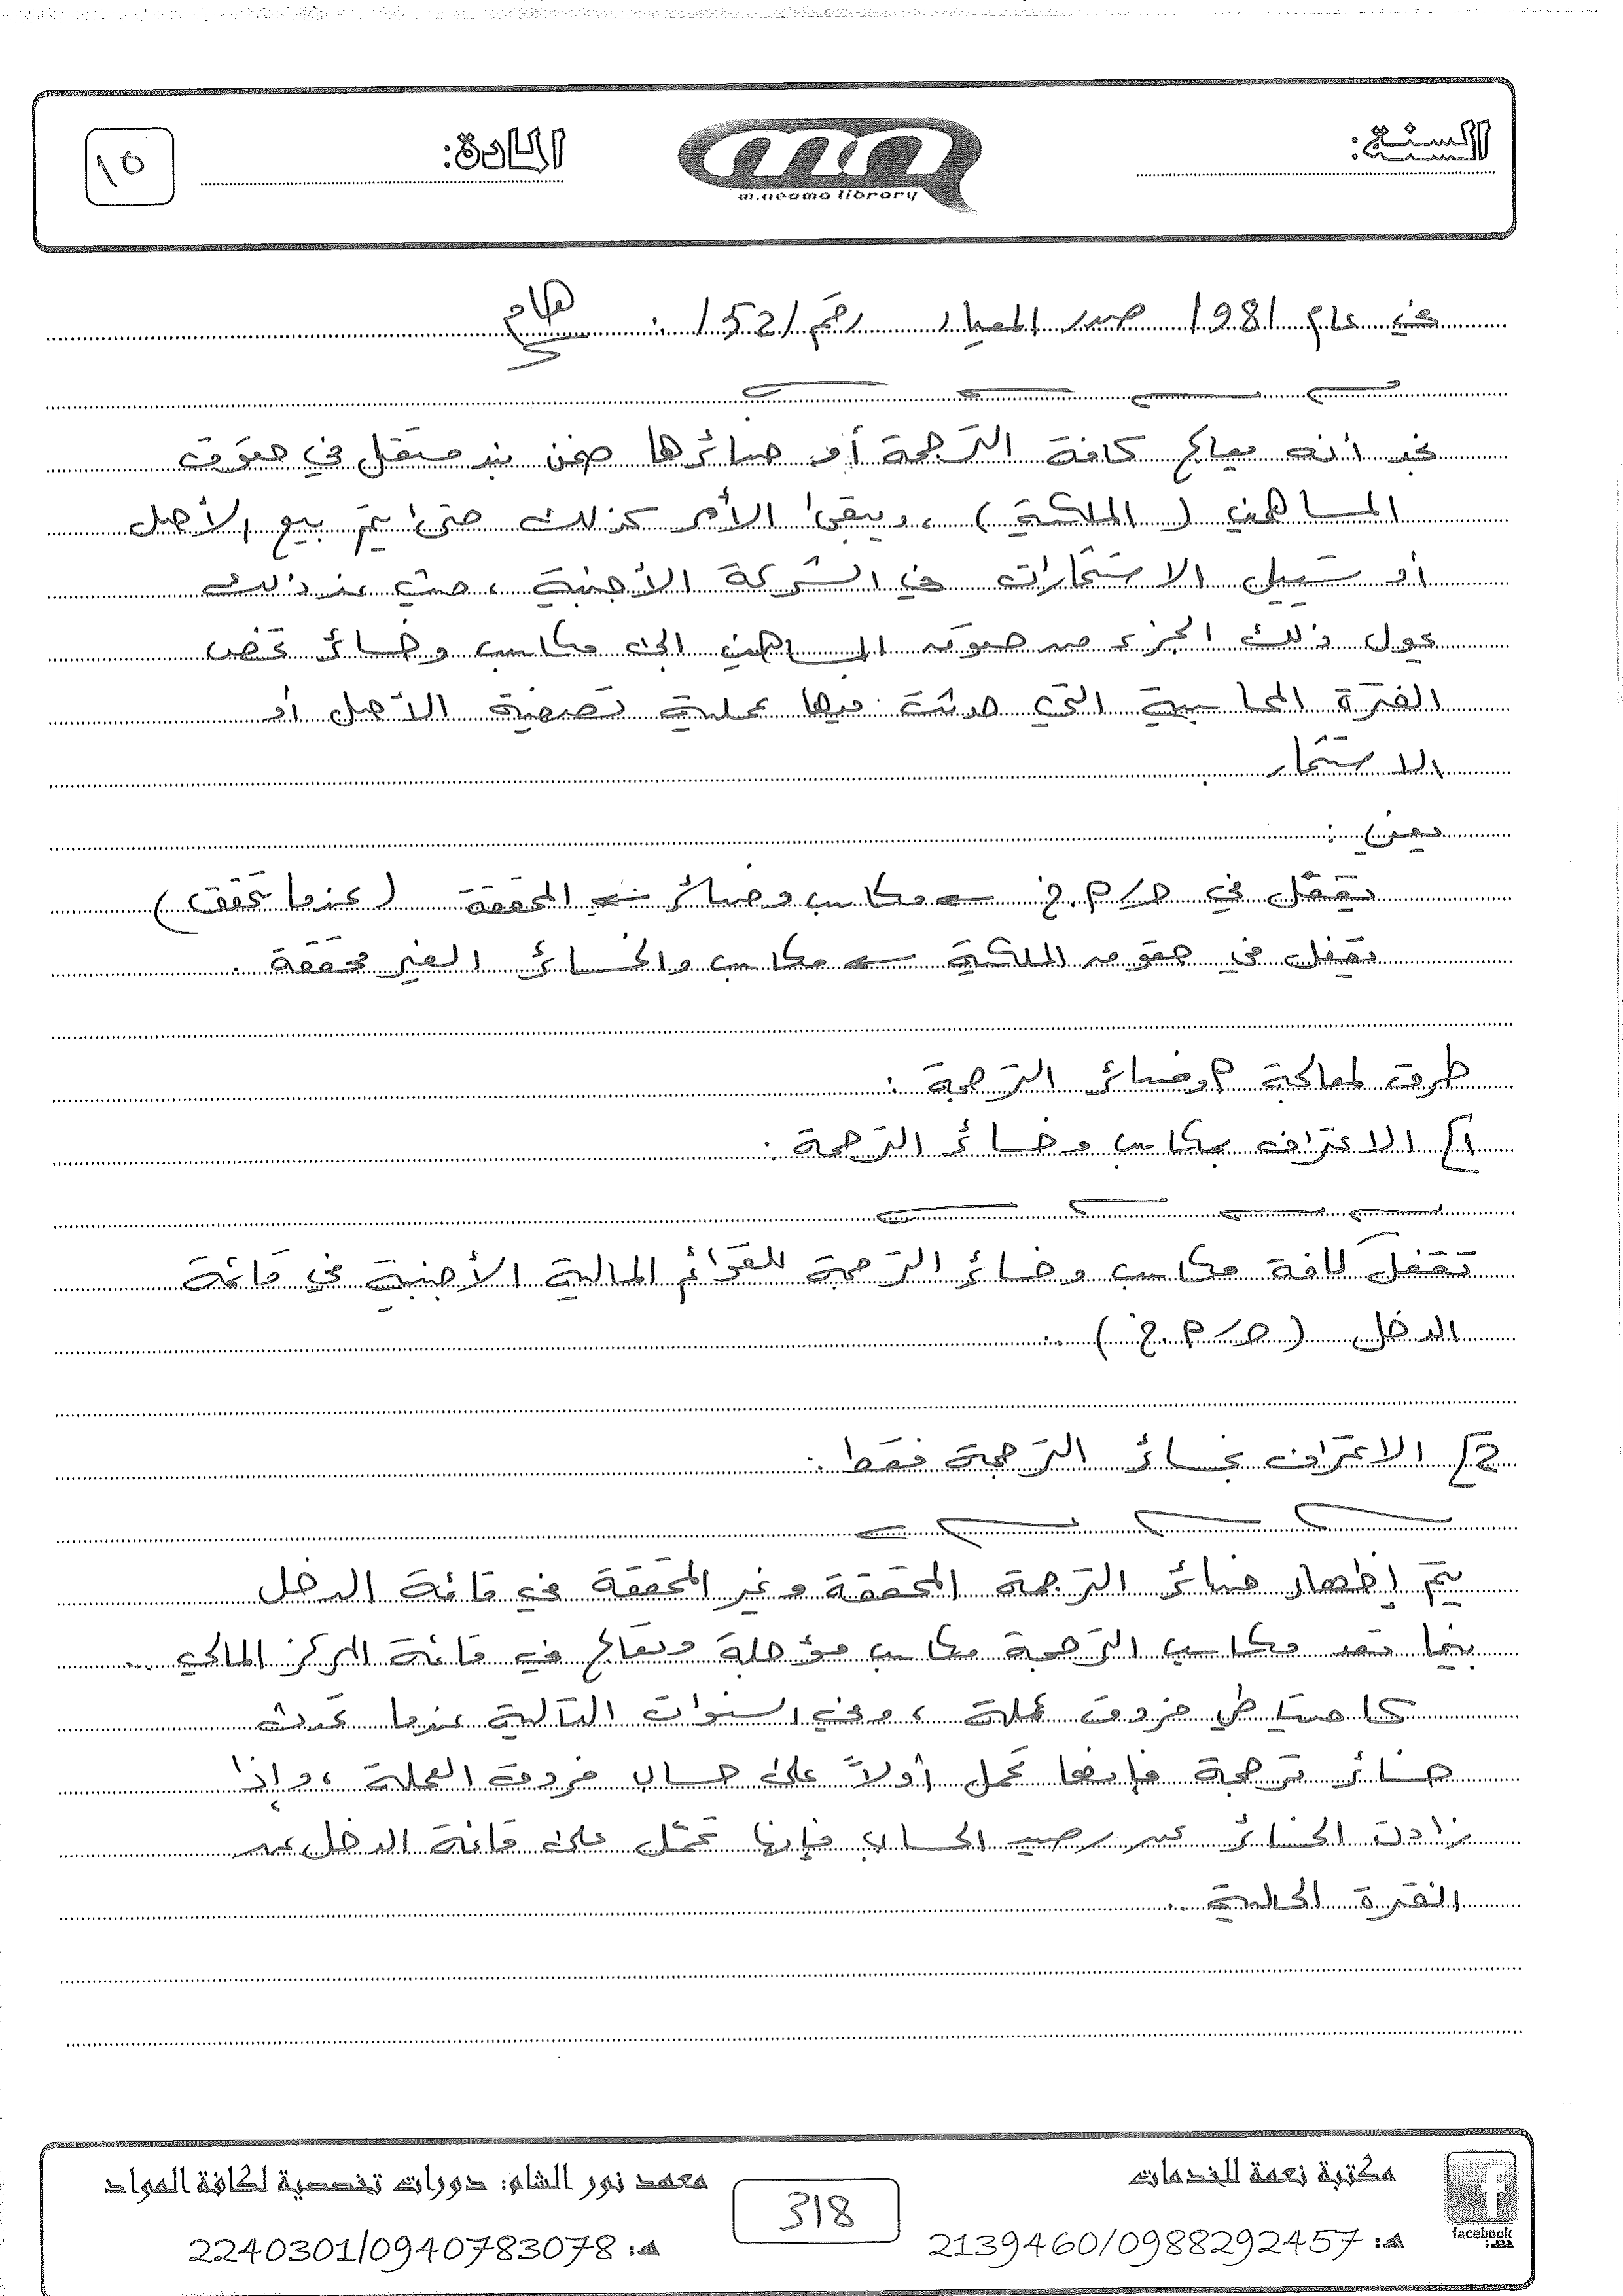 السنة:
المادة:
١٥
m.neama library
في عام 1981 صدر المعيار رقم /52/ : هام
نجد أنه يعالج كافة الترجمة أو خسائرها ضمن بند مستقل في حقوق
المساهمين ( الملكية ) ، ويبقى الأمر كذلك حتى يتم بيع الأصل
أو تسييل الاستثمارات في الشركة الأجنبية ، حيث عند ذلك
يحول ذلك الجزء من حقوق المساهمين الى مكاسب وخسائر تخص
الفترة المحاسبية التي حدثت فيها عملية تصفية الأصل أو
الاستثمار .
يعني :
تقفل في ح/ م.خ ← مكاسب وخسائر ← المحققة ( عندما تحقق )
تقفل في حقوق الملكية ← مكاسب والخسائر الغير محققة .
طرق لمعالجة م وخسائر الترجمة :
1) الاعتراف بمكاسب وخسائر الترجمة :
تقفل كافة مكاسب وخسائر الترجمة للقوائم المالية الأجنبية في قائمة
الدخل ( ح/ م.خ ) ..
2) الاعتراف بخسائر الترجمة فقط :
يتم إظهار خسائر الترجمة المحققة وغير المحققة في قائمة الدخل
بينما تعد مكاسب الترجمة مكاسب مؤجلة وتعالج في قائمة المركز المالي ..
كاحتياطي فروق عملة ، وفي السنوات التالية عندما تحدث
خسائر ترجمة فإنها تحمل أولاً على حساب فروق العملة ، وإذا
زادت الخسائر عن رصيد الحساب فإنها تحمّل على قائمة الدخل عن
الفترة الحالية ..
مكتبة نعمة للخدمات
هـ: 2139460/0988292457
318
معهد نور الشام: دورات تخصصية لكافة المواد
هـ: 2240301/0940783078
facebook